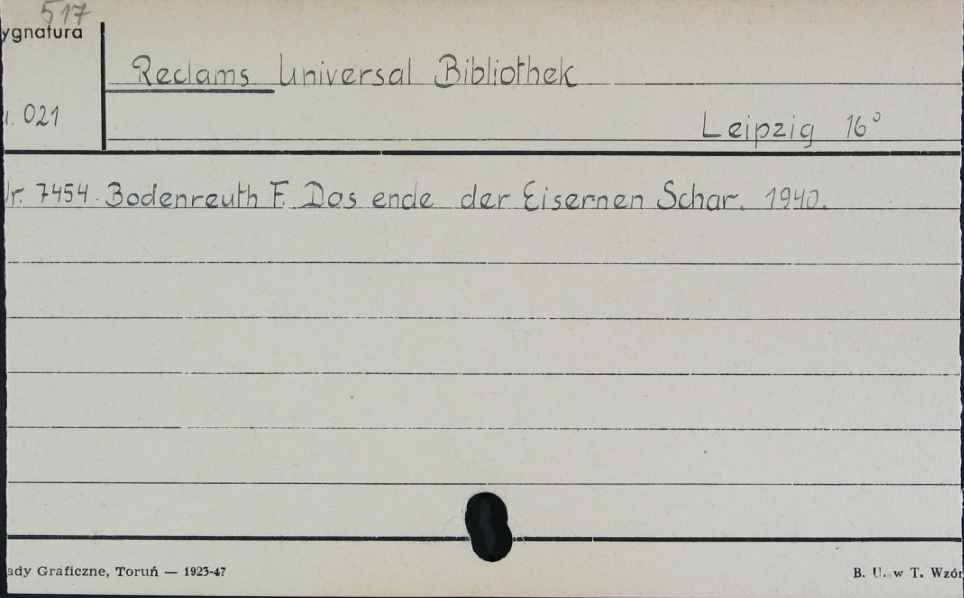 517
ygnatura
Reclams Universal Bibliothek
021
Leipzig 16°
Nr. 7454. Bodenreuth F. Das ende der Eisernen Schar. 1940.
ady Graficzne, Toruń — 1923-47
B. U. w T. Wzór